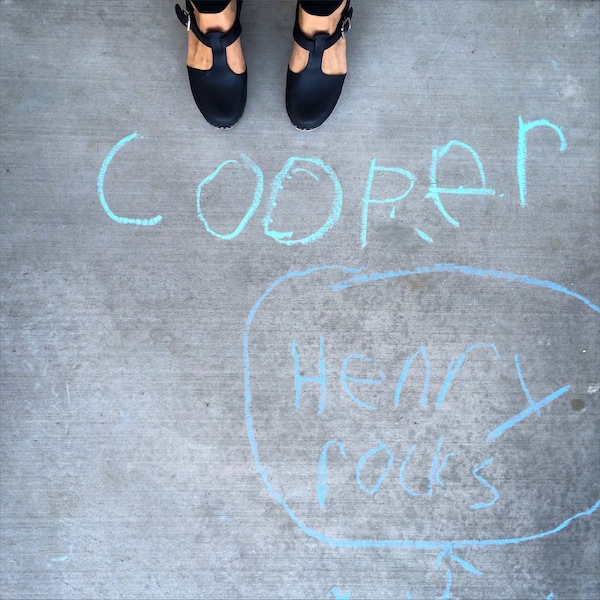 Cooper
Henry
rocks